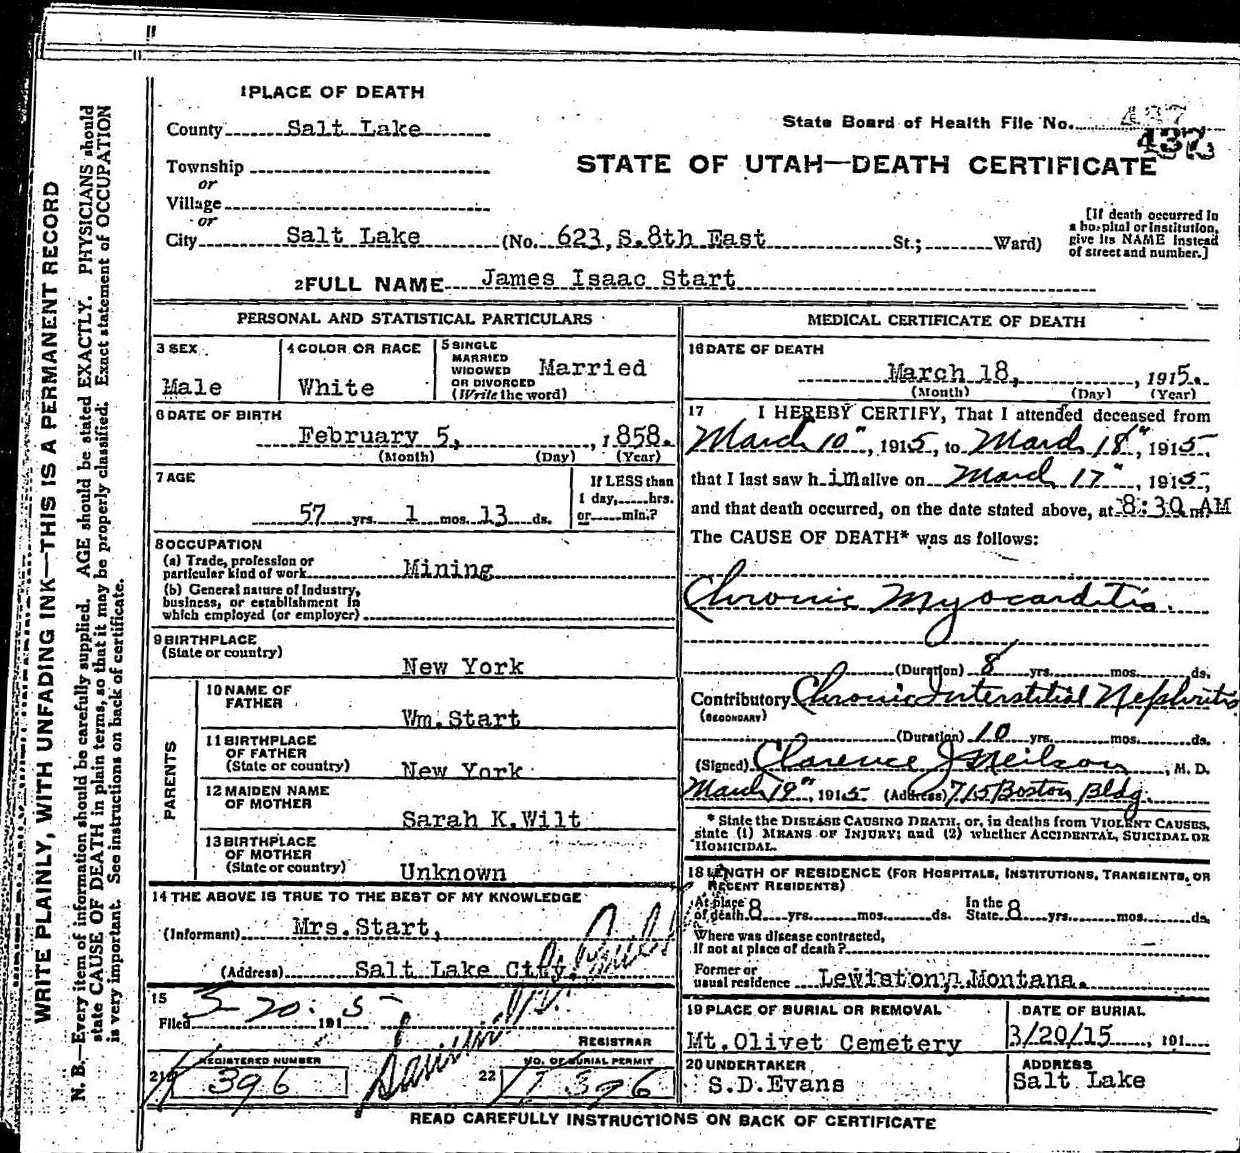 1 PLACE OF DEATH
County Salt Lake
State Board of Health File No. 437
437
Township
or
Village
or
City Salt Lake (No. 623, S. 8th East St.; Ward)
STATE OF UTAH—DEATH CERTIFICATE
[If death occurred in
a hospital or institution,
give its NAME instead
of street and number.]
2 FULL NAME James Isaac Start
PERSONAL AND STATISTICAL PARTICULARS
3 SEX
Male
4 COLOR OR RACE
White
5 SINGLE
MARRIED
WIDOWED
OR DIVORCED
(Write the word)
Married
6 DATE OF BIRTH
February 5, , 1858.
(Month) (Day) (Year)
7 AGE
57 yrs. 1 mos. 13 ds.
If LESS than
1 day, hrs.
or min.?
8 OCCUPATION
(a) Trade, profession or
particular kind of work Mining
(b) General nature of Industry,
business, or establishment in
which employed (or employer)
9 BIRTHPLACE
(State or country)
New York
PARENTS
10 NAME OF
FATHER
Wm. Start
11 BIRTHPLACE
OF FATHER
(State or country)
New York
12 MAIDEN NAME
OF MOTHER
Sarah K. Wilt
13 BIRTHPLACE
OF MOTHER
(State or country)
Unknown
14 THE ABOVE IS TRUE TO THE BEST OF MY KNOWLEDGE
(Informant) Mrs. Start,
(Address) Salt Lake City.
15
Filed 3-20 1915
REGISTRAR
21 REGISTERED NUMBER
396
22 NO. OF BURIAL PERMIT
1396
MEDICAL CERTIFICATE OF DEATH
16 DATE OF DEATH
March 18, , 1915.
(Month) (Day) (Year)
17 I HEREBY CERTIFY, That I attended deceased from
March 10", 1915, to March 18", 1915
that I last saw him alive on March 17", 1915,
and that death occurred, on the date stated above, at 8:30 m. AM
The CAUSE OF DEATH* was as follows:
Chronic Myocarditis.
(Duration) 8 yrs. mos. ds.
Contributory Chronic Interstitial Nephritis
(SECONDARY)
(Duration) 10 yrs. mos. ds.
(Signed) Clarence J Neilson, M. D.
March 19", 1915 (Address) 715 Boston Bldg.
* State the DISEASE CAUSING DEATH, or, in deaths from VIOLENT CAUSES,
state (1) MEANS OF INJURY; and (2) whether ACCIDENTAL, SUICIDAL OR
HOMICIDAL.
18 LENGTH OF RESIDENCE (FOR HOSPITALS, INSTITUTIONS, TRANSIENTS, OR
RECENT RESIDENTS)
At place
of death 8 yrs. mos. ds.
In the
State 8 yrs. mos. ds.
Where was disease contracted,
If not at place of death?
Former or
usual residence Lewistown, Montana.
19 PLACE OF BURIAL OR REMOVAL
Mt. Olivet Cemetery
DATE OF BURIAL
3/20/15 , 191
20 UNDERTAKER
S.D. Evans
ADDRESS
Salt Lake
READ CAREFULLY INSTRUCTIONS ON BACK OF CERTIFICATE
WRITE PLAINLY, WITH UNFADING INK—THIS IS A PERMANENT RECORD
N. B.—Every item of information should be carefully supplied. AGE should be stated EXACTLY. PHYSICIANS should
state CAUSE OF DEATH in plain terms, so that it may be properly classified. Exact statement of OCCUPATION
is very important. See instructions on back of certificate.